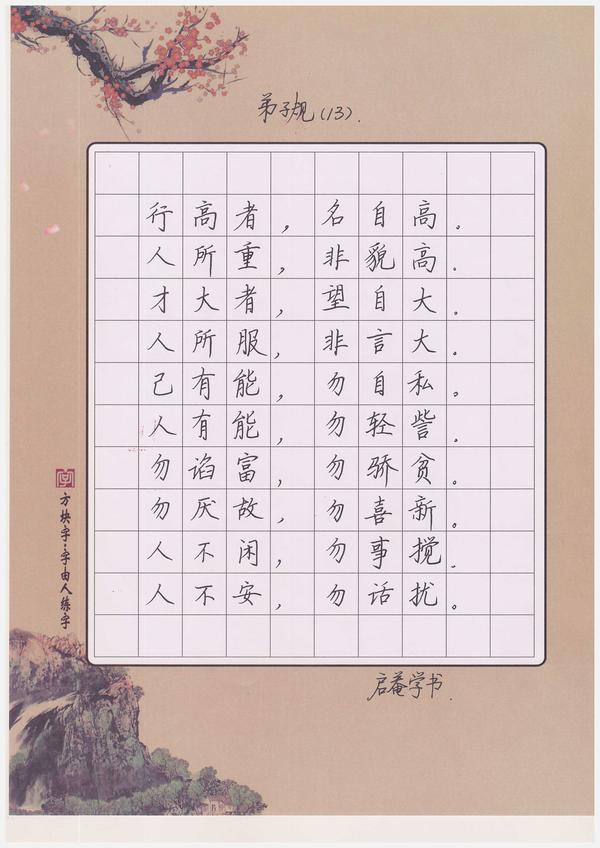 弟子规(13).
行高者,名自高。
人所重,非貌高.
才大者,望自大。
人所服,非言大。
己有能,勿自私。
人有能,勿轻訾.
勿谄富,勿骄贫。
勿厌故,勿喜新。
人不闲,勿事搅.
人不安,勿话扰。
字
方块字·字由人练字
启菴学书.